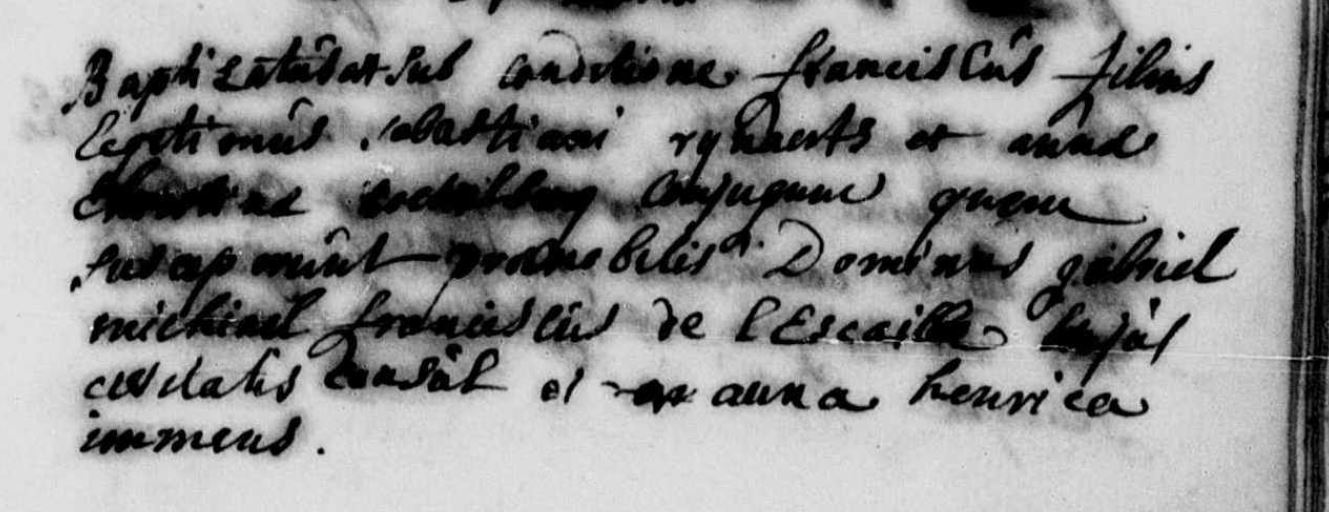 Baptizatus est sub conditione franciscus filius
legitimus sebastiani rynaerts et annae
Christinae conjugum quem
susceperunt praenobilis Dominus gabriel
michael franciscus de l'Escaille hujus
civitatis consul et anna henrica
immens.